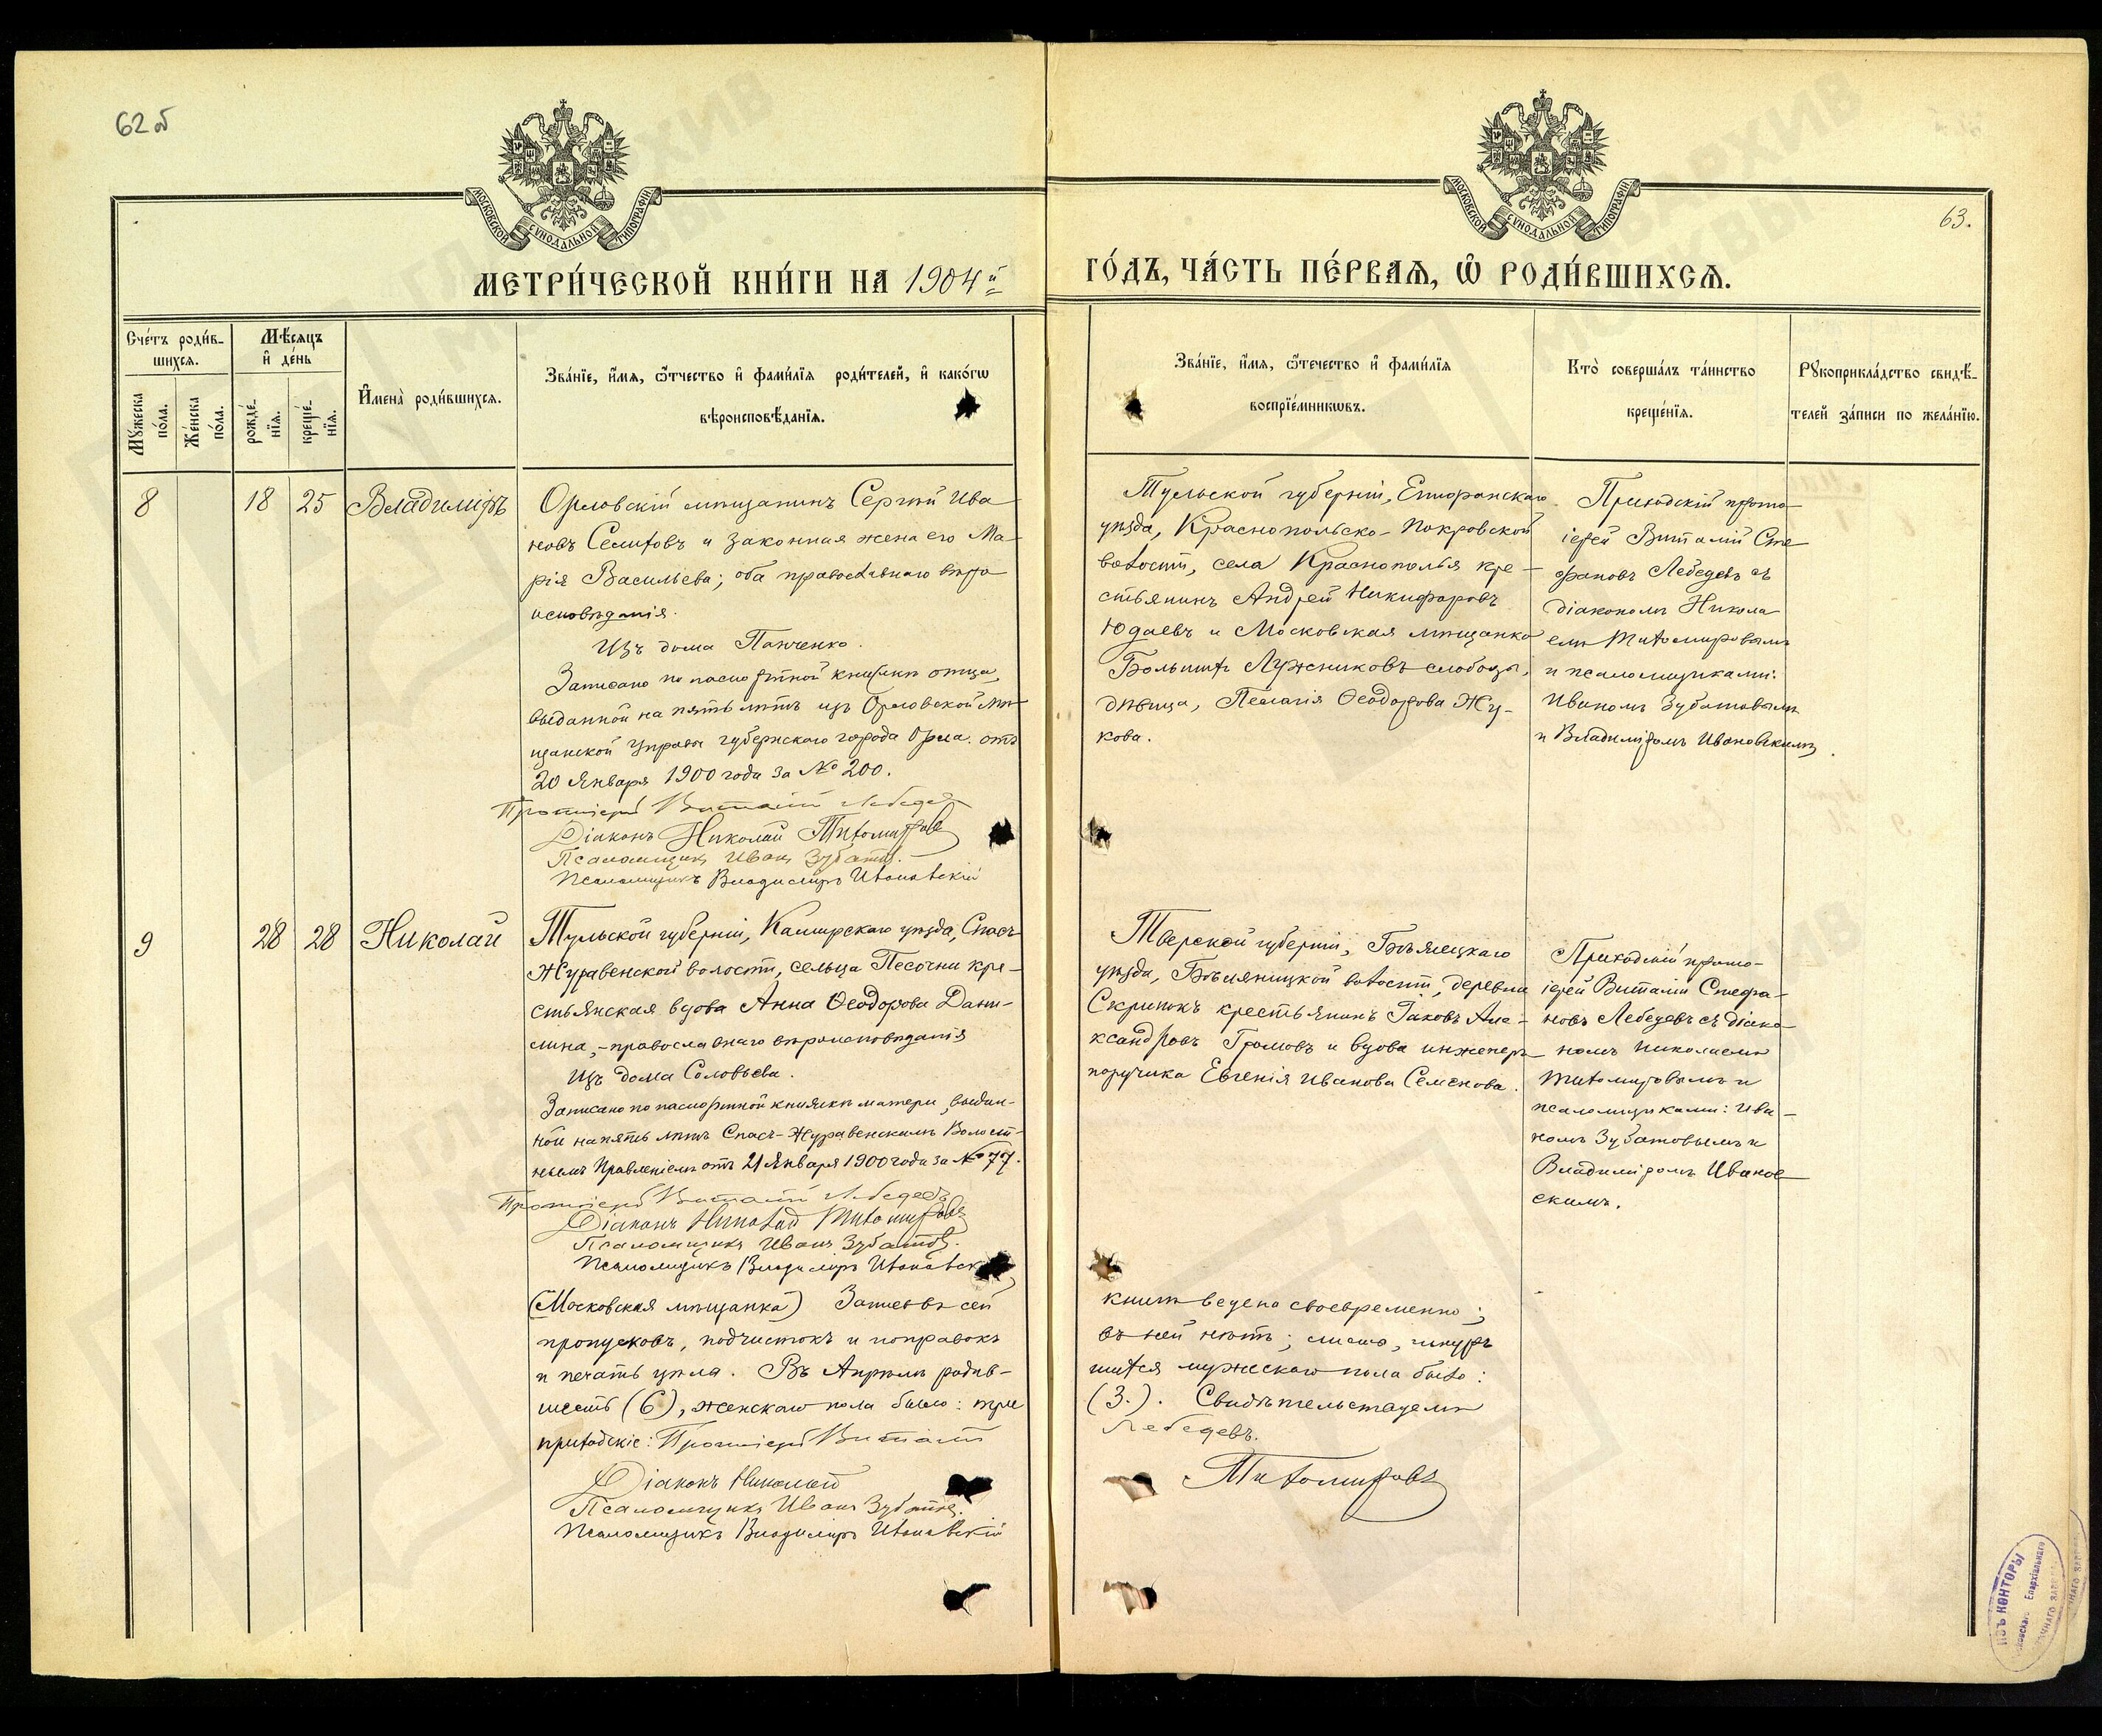 62об
63.
МОСКОВСКОЙ СѴНОДАЛЬНОЙ ТИПОГРАФІИ
МОСКОВСКОЙ СѴНОДАЛЬНОЙ ТИПОГРАФІИ
МЕТРИ́ЧЕСКОЙ КНИ́ГИ НА 1904й
ГО́ДЪ, ЧА́СТЬ ПЕ́РВАѦ, Ѡ РОДИ́ВШИХСѦ.
Сче́тъ роди́в-
шихсѧ.
Мꙋ́жеска по́ла.
Же́нска по́ла.
Мѣ́сѧцъ
и҆ де́нь
рожде́-
нїѧ.
креще́-
нїѧ.
И҆мена̀ роди́вшихсѧ.
Зва́нїе, и҆́мѧ, ѻ҆́тчество и҆ фами́лїѧ роди́телей, и҆ како́гѡ
вѣроисповѣ́данїѧ.
Зва́нїе, и҆́мѧ, ѻ҆те́чество и҆ фами́лїѧ
воспрїе́мникѡвъ.
Кто̀ соверша́лъ та́инство
креще́нїѧ.
Рꙋкоприкла́дство свидѣ́-
телей за́писи по жела́нїю.
8
18
25
Владиміръ
Орловскій мѣщанинъ Сергій Ива
новъ Селитовъ и законная жена его Ма-
рія Васильева; оба православнаго вѣро
исповѣданія.
Изъ дома Панченко.
Записано по паспортной книжкѣ отца,
выданной на пять лѣтъ изъ Орловской мѣ
щанской Управы губернскаго города Орла. отъ
20 Января 1900 года за № 200.
Протоіерей Виталій Лебедевъ
Діаконъ Николай Тихомировъ
Псаломщикъ Иванъ Зубатовъ.
Псаломщикъ Владиміръ Ивановскій
Тульской губерніи, Епифанскаго
уѣзда, Краснопольско-Покровской
волости, села Краснополья кре-
стьянинъ Андрей Никифоровъ
Юдаевъ и Московская мѣщанка
Большихъ Лужниковъ слободы,
дѣвица, Пелагія Ѳеодорова Жу-
кова.
Приходскій прото-
іерей Виталій Сте
фановъ Лебедевъ съ
діакономъ Никола
емъ Тихомировымъ
и псаломщиками:
Иваномъ Зубатовымъ
и Владиміромъ Ивановскимъ.
9
28
28
Николай
Тульской губерніи, Каширскаго уѣзда, Спасъ-
Журавенской волости, сельца Песочни кре-
стьянская вдова Анна Ѳеодорова Дани-
лина,-православнаго вѣроисповѣданія
Изъ дома Соловьева.
Записано по паспортной книжкѣ матери, выдан-
ной на пять лѣтъ Спасъ-Журавенскимъ Волост-
нымъ Правленіемъ отъ 21 Января 1900 года за № 77.
Протоіерей Виталій Лебедевъ
Діаконъ Николай Тихомировъ
Псаломщикъ Иванъ Зубатовъ.
Псаломщикъ Владиміръ Ивановск
Тверской губерніи, Бѣжецкаго
уѣзда, волости, деревни
Скрипокъ крестьянинъ Іаковъ Але-
ксандровъ Громовъ и вдова инженеръ-
поручика Евгенія Иванова Семенова.
Приходскій прото-
іерей Виталій Стефа-
новъ Лебедевъ съ діако-
номъ Николаемъ
Тихомировымъ и
псаломщиками: Ива-
номъ Зубатовымъ и
Владиміромъ Иванов-
скимъ.
(Московская мѣщанка) Запись въ сей
книгѣ ведена своевременно;
пропусковъ, подчистокъ и поправокъ
въ ней нѣтъ; листы, шнуръ
и печать цѣлы. Въ Апрѣлѣ родив-
шихся мужескаго пола было:
шесть (6), женскаго пола было: три
(3.). Свидѣтельствуемъ
приходскіе: Протоіерей Виталій
Лебедевъ.
Діаконъ Николай
Тихомировъ
Псаломщикъ Иванъ Зубатовъ.
Псаломщикъ Владиміръ Ивановскій
ИЗЪ КОНТОРЫ
Епархіальнаго